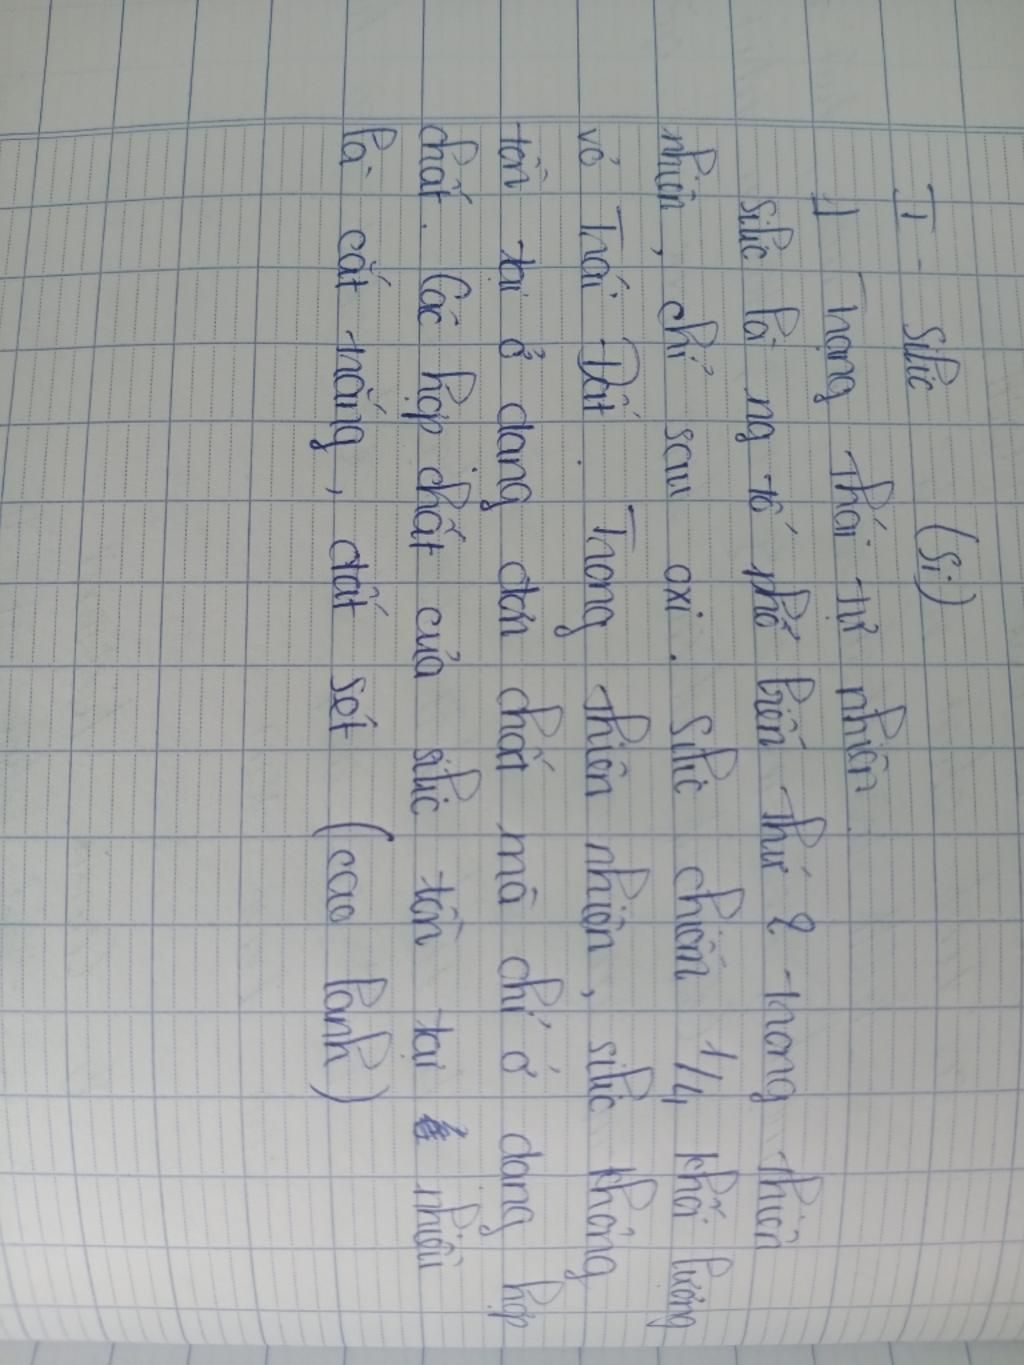 I. Silic (Si)
1 Trạng thái tự nhiên
Silic là ng tố phổ biến thứ 2 trong thiên
nhiên, chỉ sau oxi. Silic chiếm 1/4 khối lượng
vỏ Trái Đất. Trong thiên nhiên, silic không
tồn tại ở dạng đơn chất mà chỉ ở dạng hợp
chất. Các hợp chất của silic tồn tại ở nhiều
là cát trắng, đất sét (cao lanh)